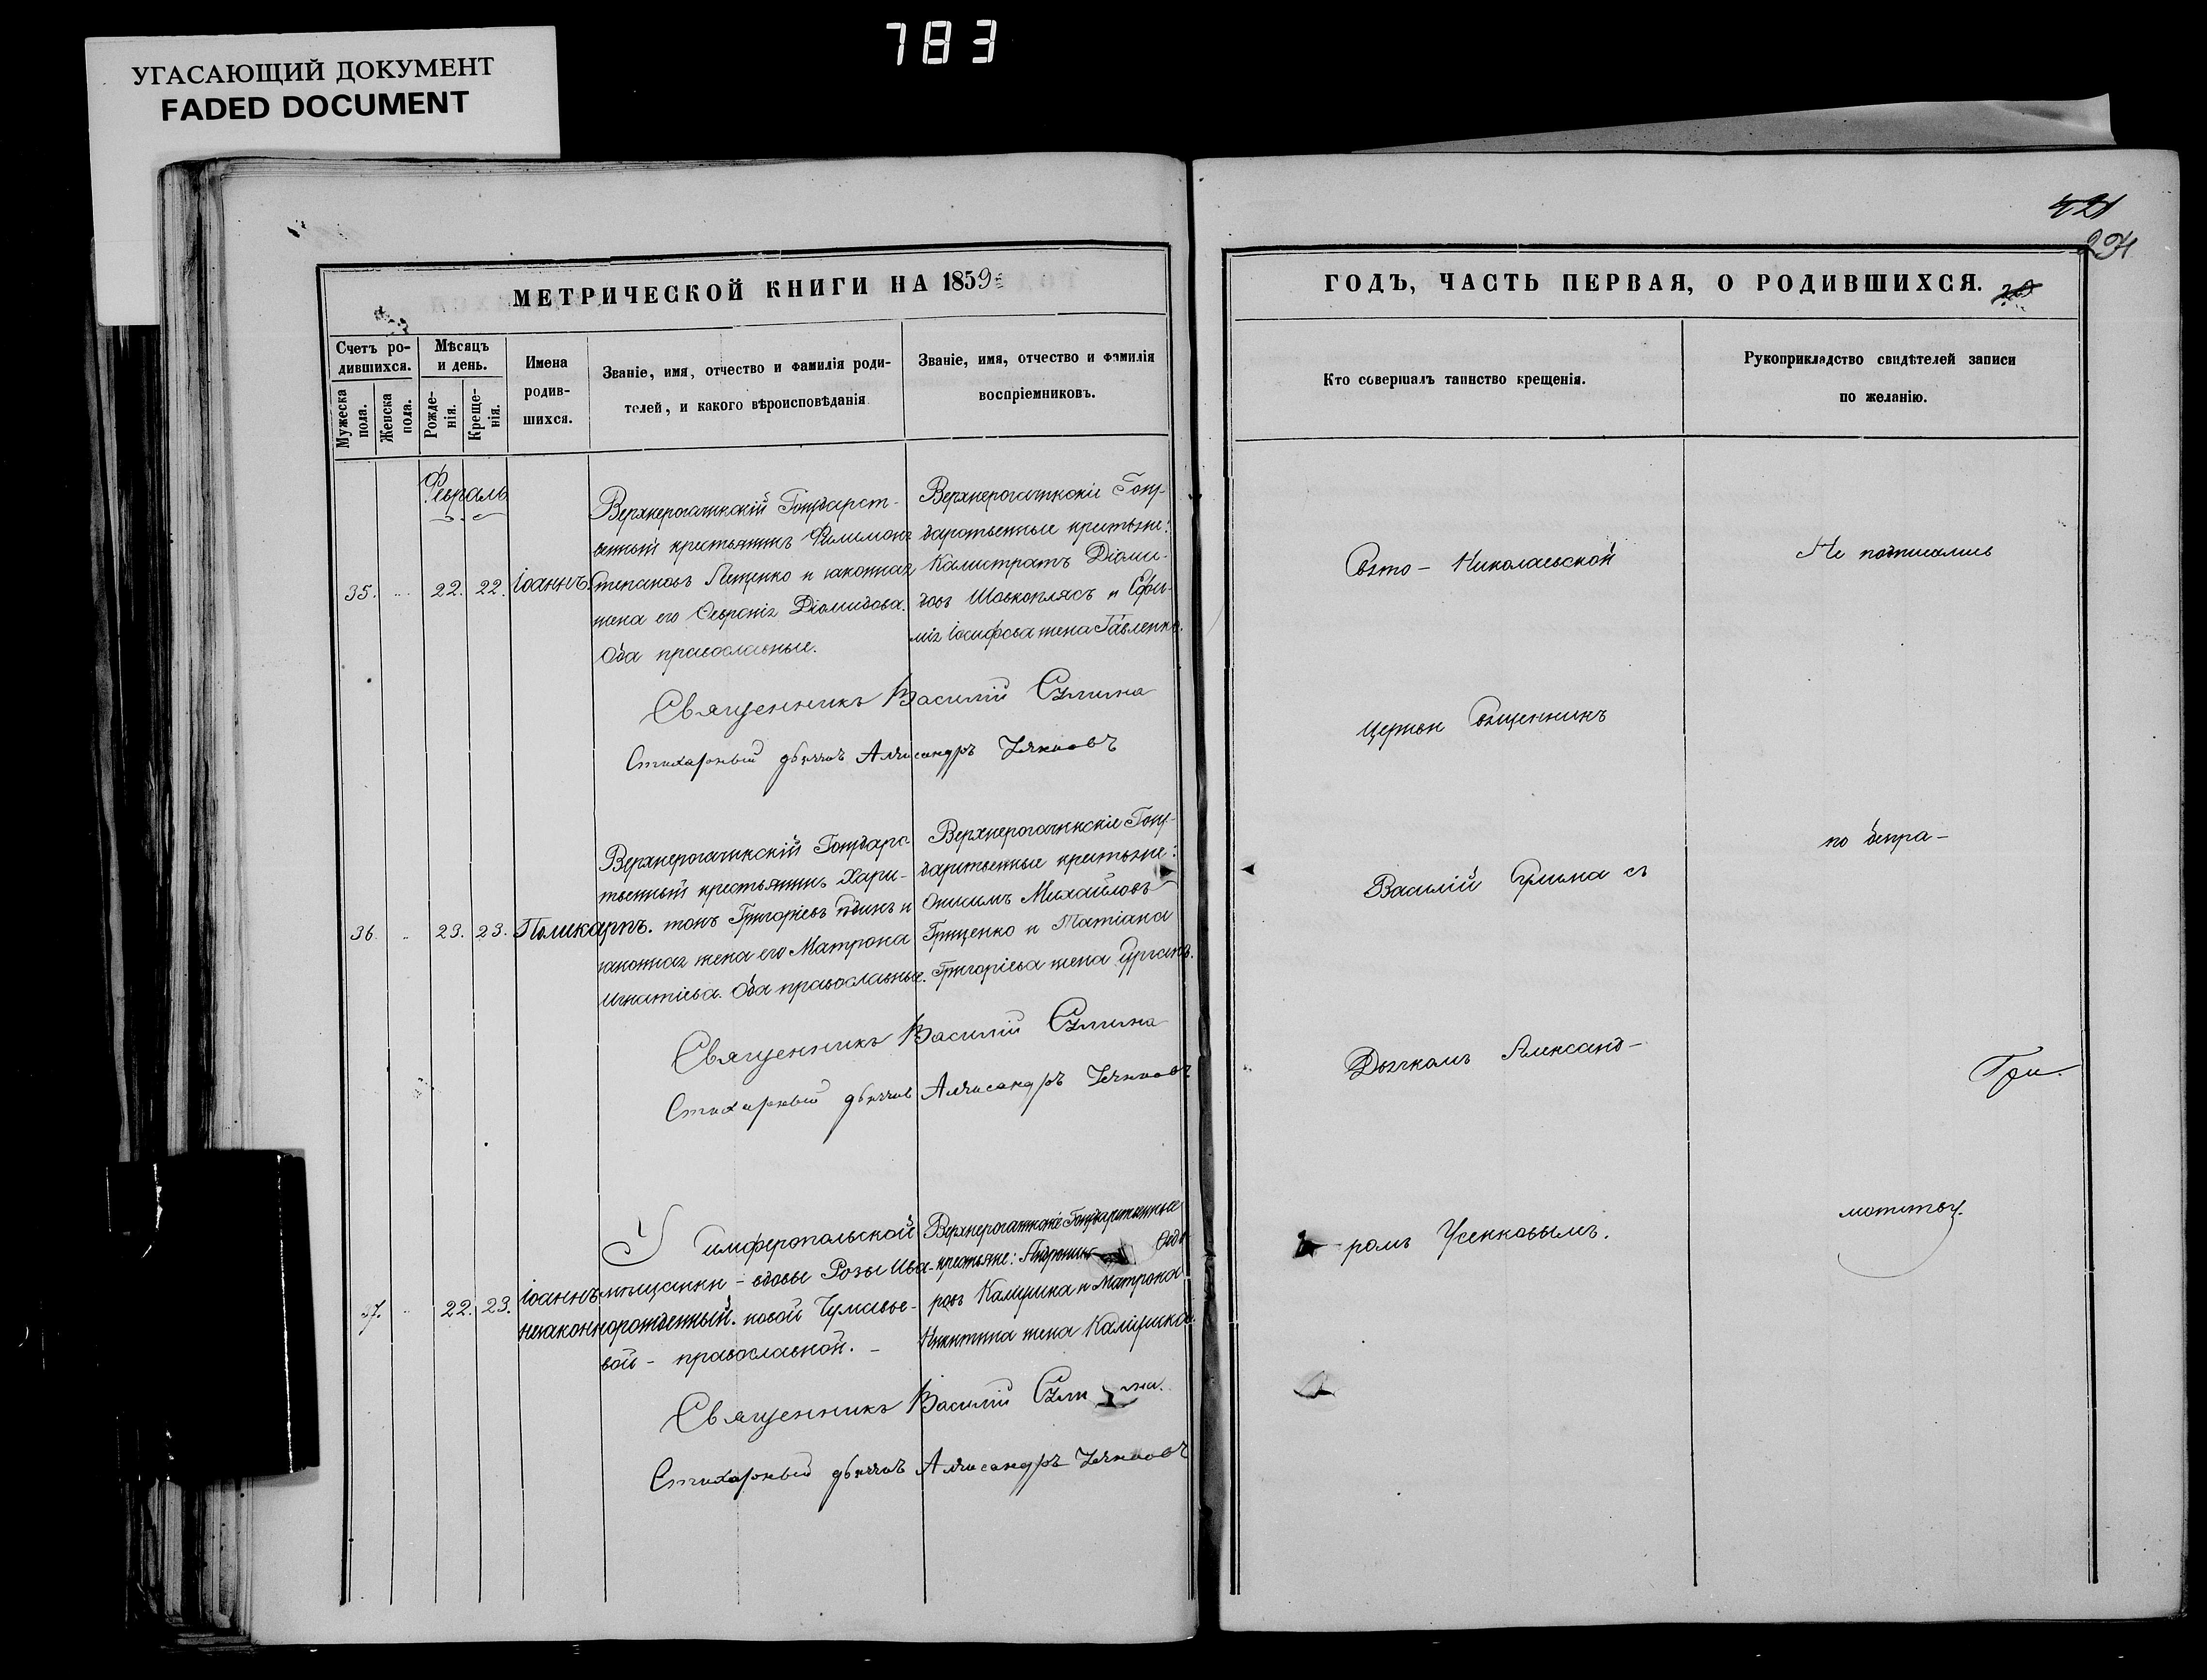 783
УГАСАЮЩИЙ ДОКУМЕНТ
FADED DOCUMENT
МЕТРИЧЕСКОЙ КНИГИ НА 1859
Счетъ ро-
дившихся.
Мужеска
пола.
Женска
пола.
Мѣсяцъ
и день.
Рожде-
нія.
Креще-
нія.
Имена
родив-
шихся.
Званіе, имя, отчество и фамилія роди-
телей, и какого вѣроисповѣданія
Званіе, имя, отчество и фамилія
воспріемниковъ.
Февраль
35. 22. 22. Іоаннъ.
Верхнерогачикскій Государст-
венный крестьянинъ Филимонъ
Степановъ Лещенко и законная
жена его Діомидова.
Оба православные.
Верхнерогачикскіе Госу-
дарственные крестьяне:
Калистратъ Діоми-
довъ Шовкоплясъ и Ефи-
мія Іосифова жена Павленка.
Священникъ Василій
Стихарный дьячокъ Александръ
36. 23. 23. Поликарпъ.
Верхнерогачикскій Государс
твенный крестьянинъ Хари-
тонъ Григоріевъ и
законная жена его Матрона
Игнатіева. Оба православные.
Верхнерогачикскіе Госу-
дарственные крестьяне:
Онисимъ Михайловъ
Гриценко и Татіана
Григоріева жена
Священникъ Василій
Стихарный дьячокъ Александръ
37. 22. 23. Іоаннъ
незаконнорожденный.
У Симферопольской
мѣщанки - вдовы Розы Ива-
новой
вой - православной. -
Верхнерогачикскіе Государственные
крестьяне:
ровъ и Матрона
Никитина жена
Священникъ Василій
Стихарный дьячокъ Александръ
421
ГОДЪ, ЧАСТЬ ПЕРВАЯ, О РОДИВШИХСЯ.
Кто совершалъ таинство крещенія.
Рукоприкладство свидѣтелей записи
по желанію.
Свято - Николаевской
Церкви Священникъ
Василій съ
Дьячкомъ Александ-
ромъ Усенковымъ.
Не подписались
по безгра-
мотству.